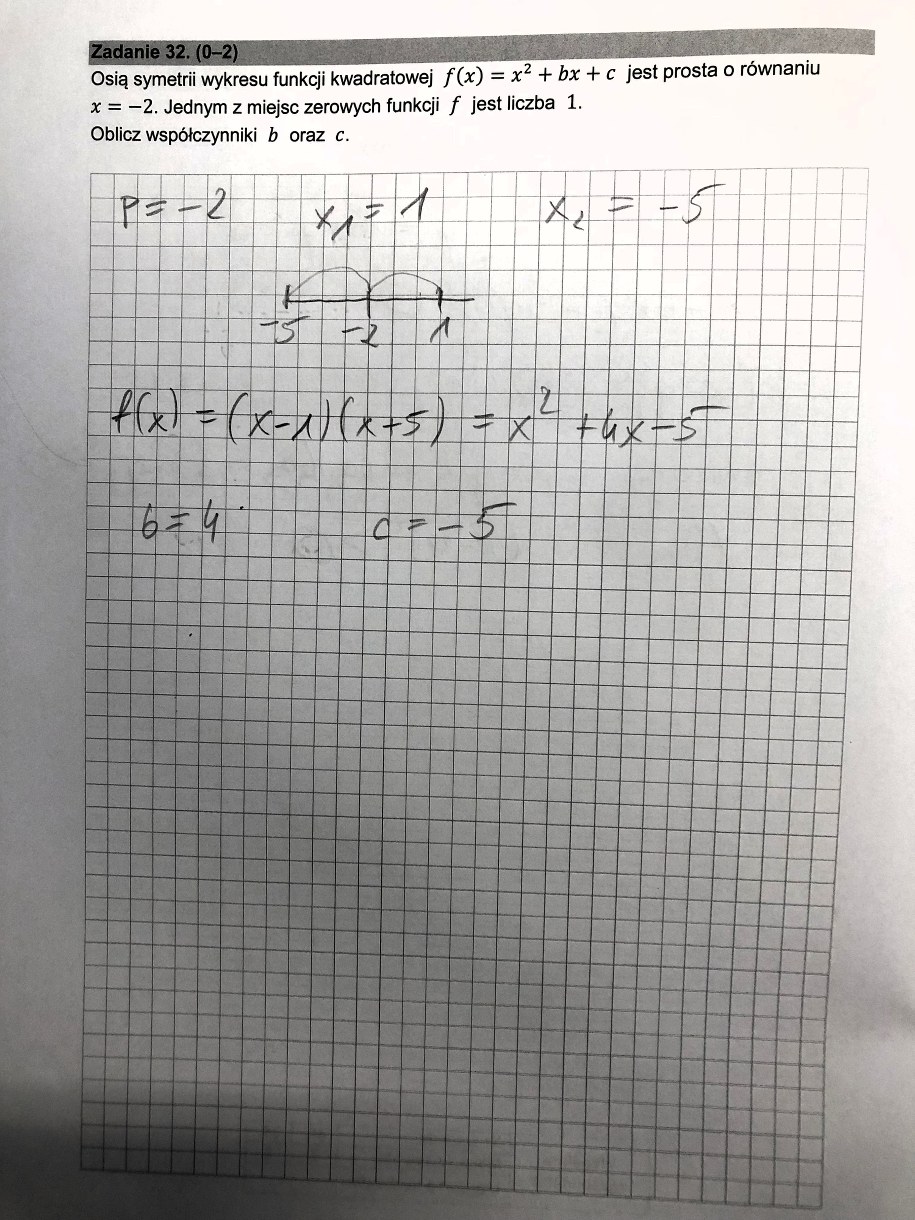 Zadanie 32. (0–2)
Osią symetrii wykresu funkcji kwadratowej f(x) = x² + bx + c jest prosta o równaniu
x = −2. Jednym z miejsc zerowych funkcji f jest liczba 1.
Oblicz współczynniki b oraz c.
p = -2 x₁ = 1 x₂ = -5
-5 -2 1
f(x) = (x-1)(x+5) = x² +4x-5
b = 4 c = -5